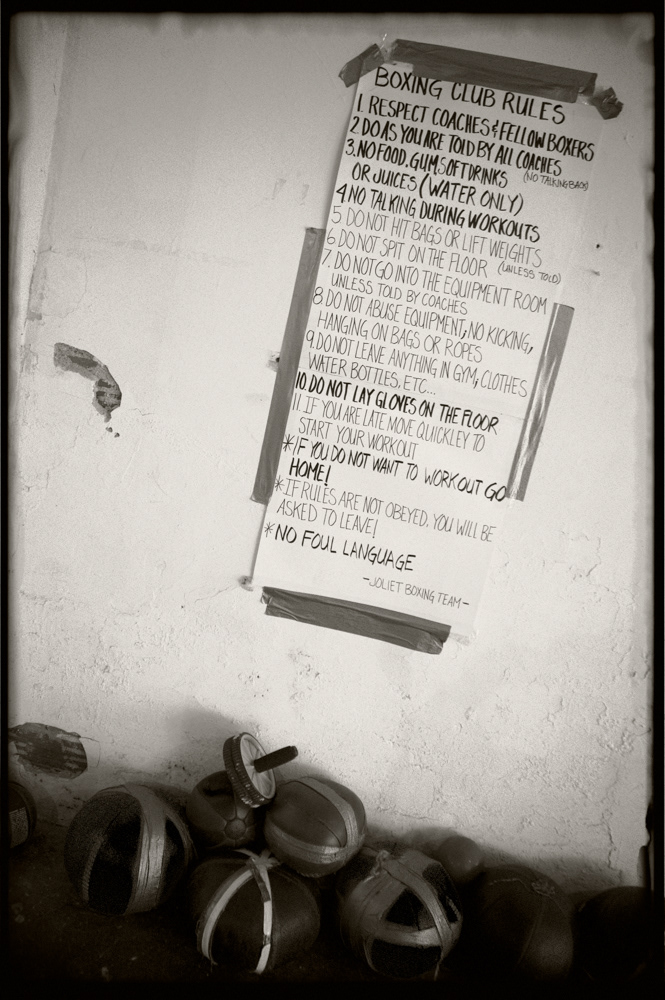 BOXING CLUB RULES
1. RESPECT COACHES & FELLOW BOXERS
2. DO AS YOU ARE TOLD BY ALL COACHES
(NO TALKING BACK)
3. NO FOOD, GUM, SOFT DRINKS
OR JUICES (WATER ONLY)
4 NO TALKING DURING WORKOUTS
5. DO NOT HIT BAGS OR LIFT WEIGHTS
(UNLESS TOLD)
6 DO NOT SPIT ON THE FLOOR
7. DO NOT GO INTO THE EQUIPMENT ROOM
UNLESS TOLD BY COACHES
8 DO NOT ABUSE EQUIPMENT, NO KICKING,
HANGING ON BAGS OR ROPES
9. DO NOT LEAVE ANYTHING IN GYM, CLOTHES
WATER BOTTLES, ETC...
10. DO NOT LAY GLOVES ON THE FLOOR
11. IF YOU ARE LATE MOVE QUICKLEY TO
START YOUR WORKOUT
*IF YOU DO NOT WANT TO WORKOUT GO
HOME!
*IF RULES ARE NOT OBEYED, YOU WILL BE
ASKED TO LEAVE!
*NO FOUL LANGUAGE
-JOLIET BOXING TEAM-